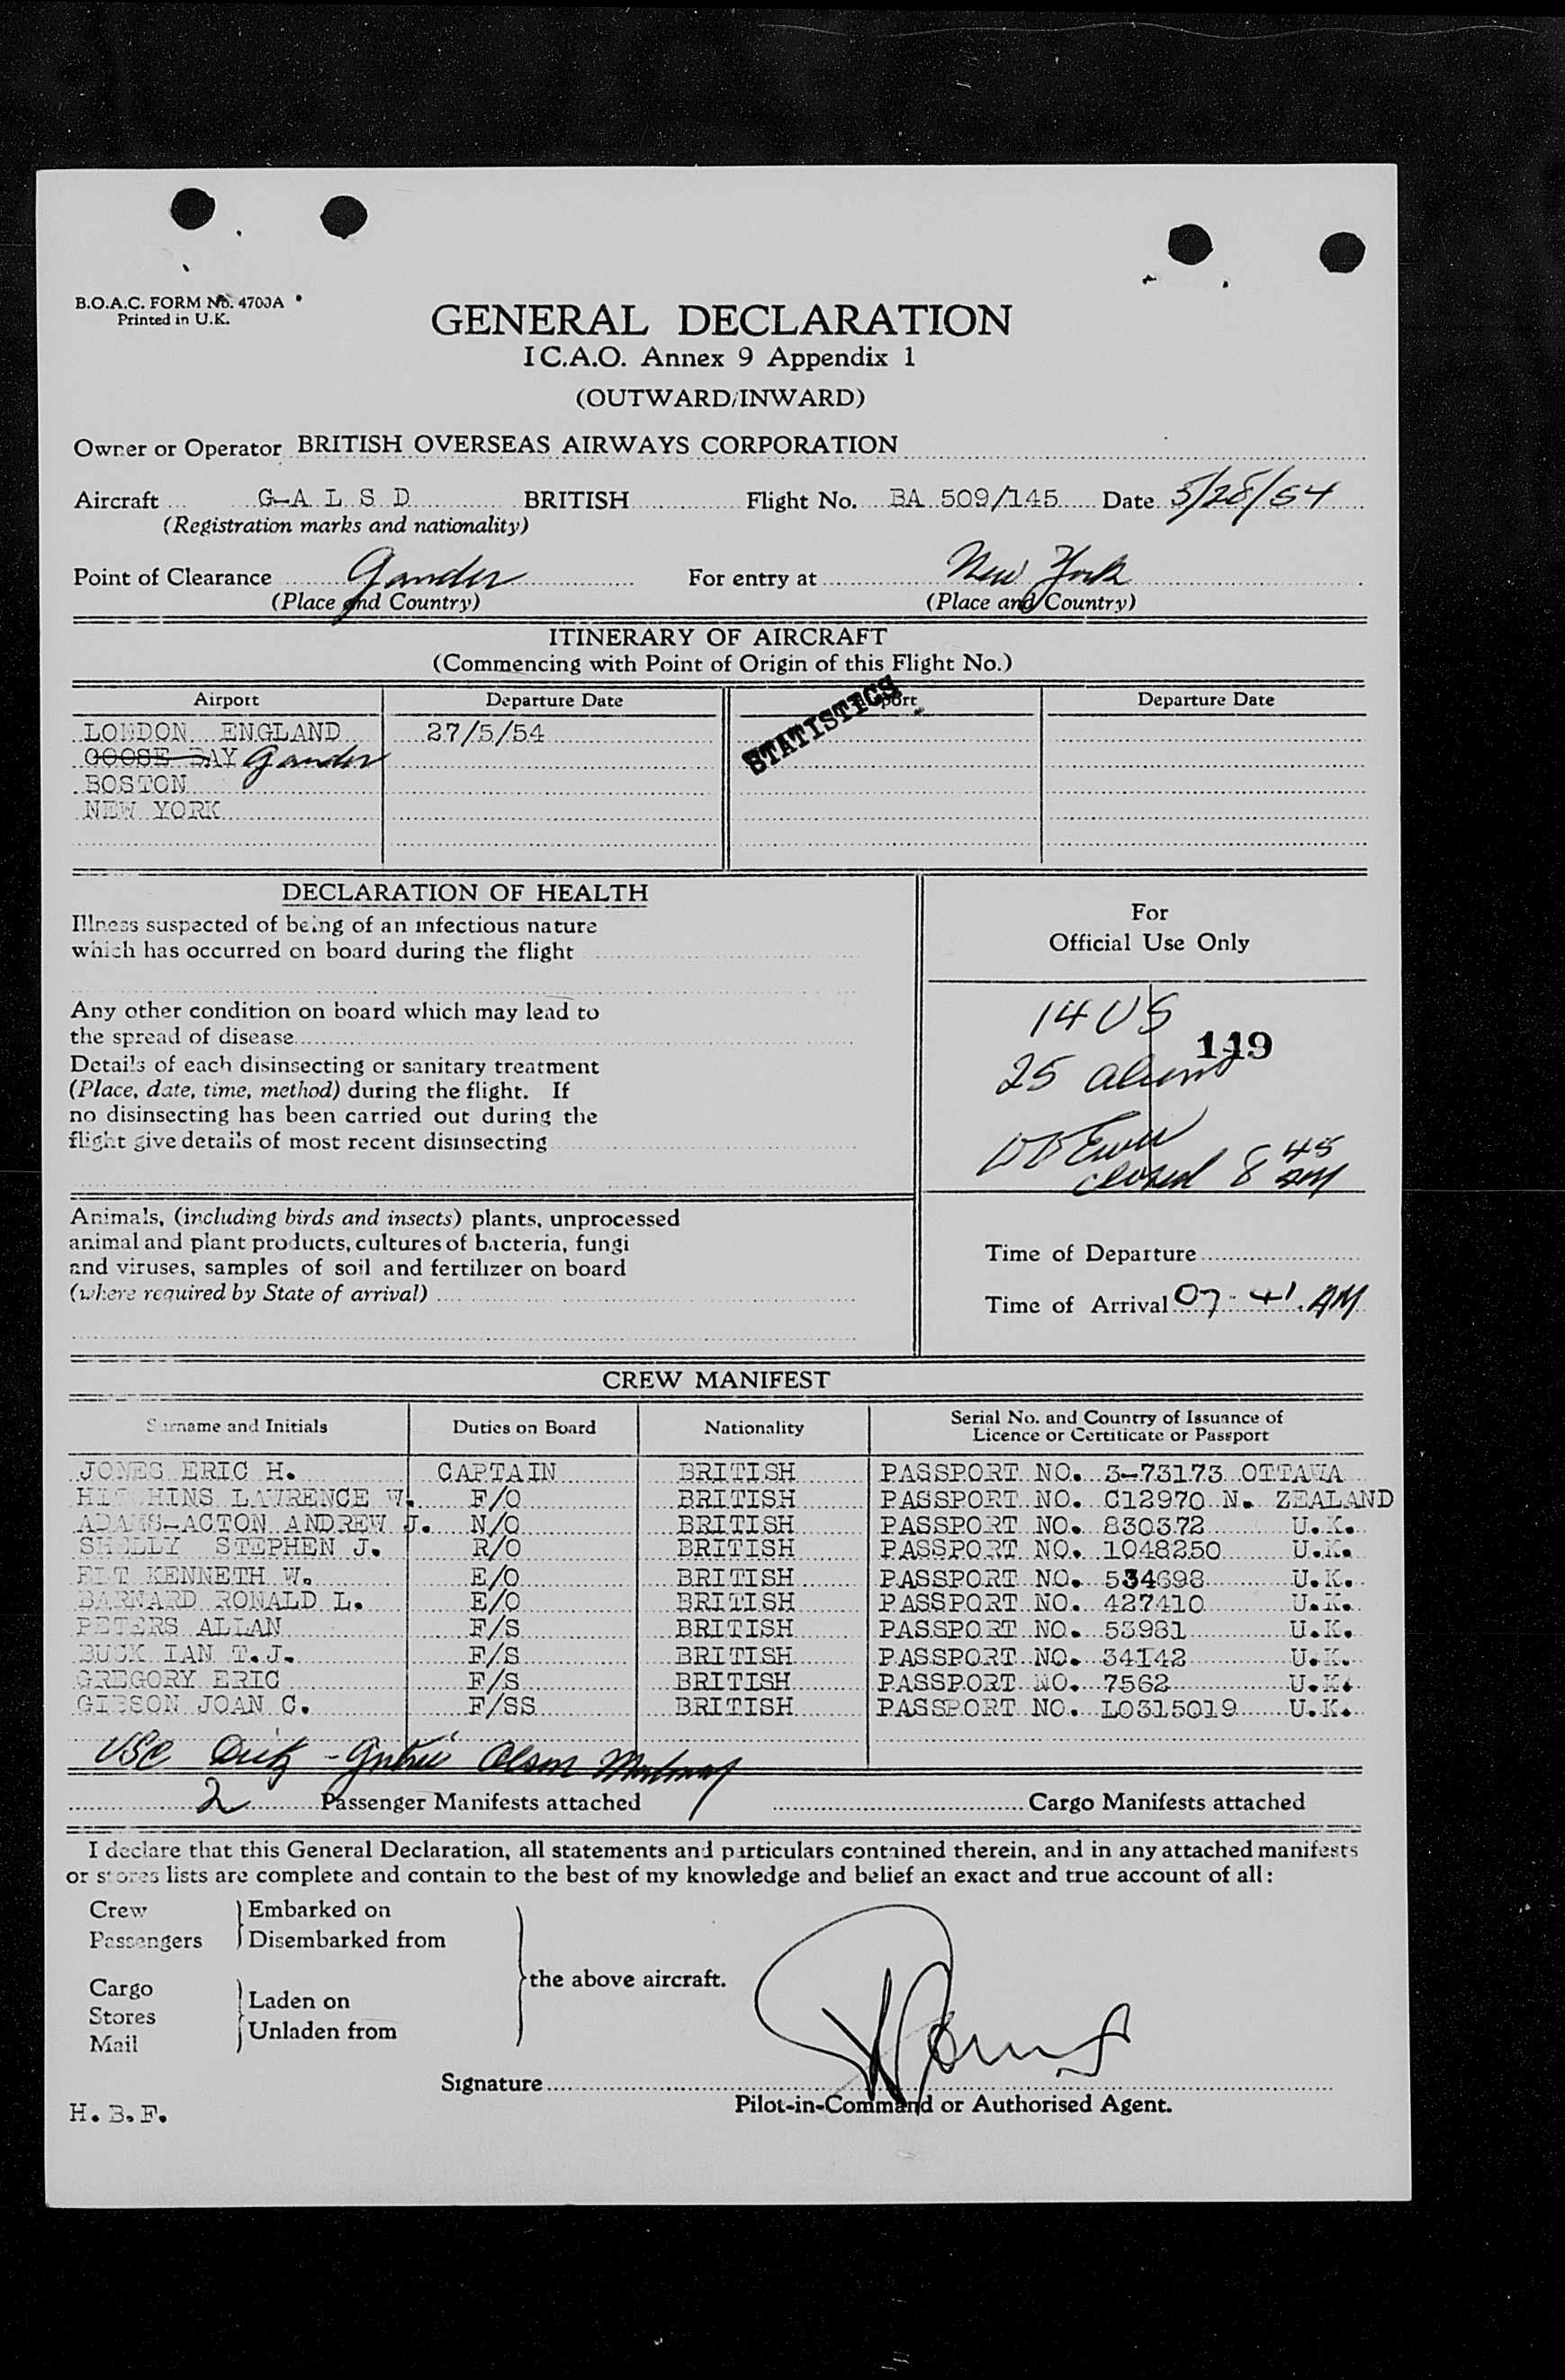 B.O.A.C. FORM No. 4700A
Printed in U.K.
GENERAL DECLARATION
I C.A.O. Annex 9 Appendix 1
(OUTWARD/INWARD)
Owner or Operator BRITISH OVERSEAS AIRWAYS CORPORATION
Aircraft G-A L S D BRITISH Flight No. BA 509/145 Date 5/28/54
(Registration marks and nationality)
Point of Clearance Gander For entry at New York
(Place and Country) (Place and Country)
ITINERARY OF AIRCRAFT
(Commencing with Point of Origin of this Flight No.)
Airport Departure Date Airport Departure Date
STATISTICS
LONDON ENGLAND 27/5/54
GOOSE BAY Gander
BOSTON
NEW YORK
DECLARATION OF HEALTH
Illness suspected of being of an infectious nature
which has occurred on board during the flight
Any other condition on board which may lead to
the spread of disease
Details of each disinsecting or sanitary treatment
(Place, date, time, method) during the flight. If
no disinsecting has been carried out during the
flight give details of most recent disinsecting
Animals, (including birds and insects) plants, unprocessed
animal and plant products, cultures of bacteria, fungi
and viruses, samples of soil and fertilizer on board
(where required by State of arrival)
For
Official Use Only
14 US
149
25 aliens
closed 8 45 AM
Time of Departure
Time of Arrival 07-41 AM
CREW MANIFEST
Surname and Initials Duties on Board Nationality Serial No. and Country of Issuance of
Licence or Certificate or Passport
JONES ERIC H. CAPTAIN BRITISH PASSPORT NO. 3-73173 OTTAWA
HITCHINS LAWRENCE W. F/O BRITISH PASSPORT NO. C12970 N. ZEALAND
ADAMS-ACTON ANDREW J. N/O BRITISH PASSPORT NO. 830372 U.K.
SHELLY STEPHEN J. R/O BRITISH PASSPORT NO. 1048250 U.K.
KENNETH W. E/O BRITISH PASSPORT NO. 534698 U.K.
BARNARD RONALD L. E/O BRITISH PASSPORT NO. 427410 U.K.
PETERS ALLAN F/S BRITISH PASSPORT NO. 53981 U.K.
BUCK IAN T.J. F/S BRITISH PASSPORT NO. 34142 U.K.
GREGORY ERIC F/S BRITISH PASSPORT NO. 7562 U.K.
GIBSON JOAN C. F/SS BRITISH PASSPORT NO. LO315019 U.K.
Olson
2 Passenger Manifests attached Cargo Manifests attached
I declare that this General Declaration, all statements and particulars contained therein, and in any attached manifests
or stores lists are complete and contain to the best of my knowledge and belief an exact and true account of all:
Crew
Passengers
Embarked on
Disembarked from
Cargo
Stores
Mail
Laden on
Unladen from
the above aircraft.
Signature
Pilot-in-Command or Authorised Agent.
H.B.F.